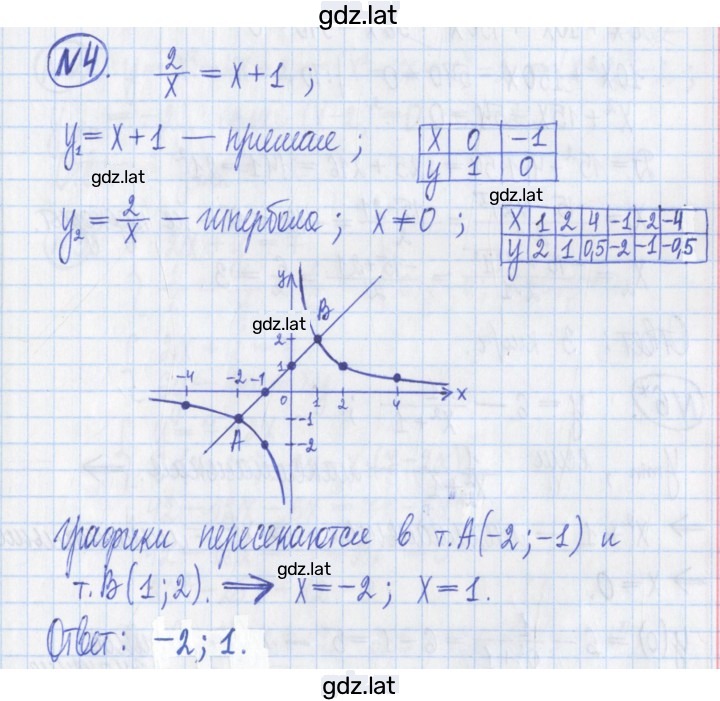 gdz.lat
№4. 2/x = x+1;
y₁ = x+1 — прямая; x 0 -1
y 1 0
gdz.lat
gdz.lat
y₂ = 2/x — гипербола; x ≠ 0; x 1 2 4 -1 -2 -4
y 2 1 0,5 -2 -1 -0,5
y
B
gdz.lat
2
1
-4 -2 -1 0 1 2 4 x
A -1
-2
Графики пересекаются в т.A(-2;-1) и
gdz.lat
т.B(1;2). ⟹ x=-2; x=1.
Ответ: -2; 1.
gdz.lat